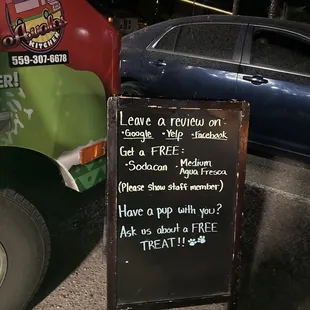 KITCHEN
559-307-6678
Leave a review on:
• Google • Yelp • Facebook
Get a FREE:
• Sodacan • Medium
Agua Fresca
(Please show staff member)
Have a pup with you?
Ask us about a FREE
TREAT!!